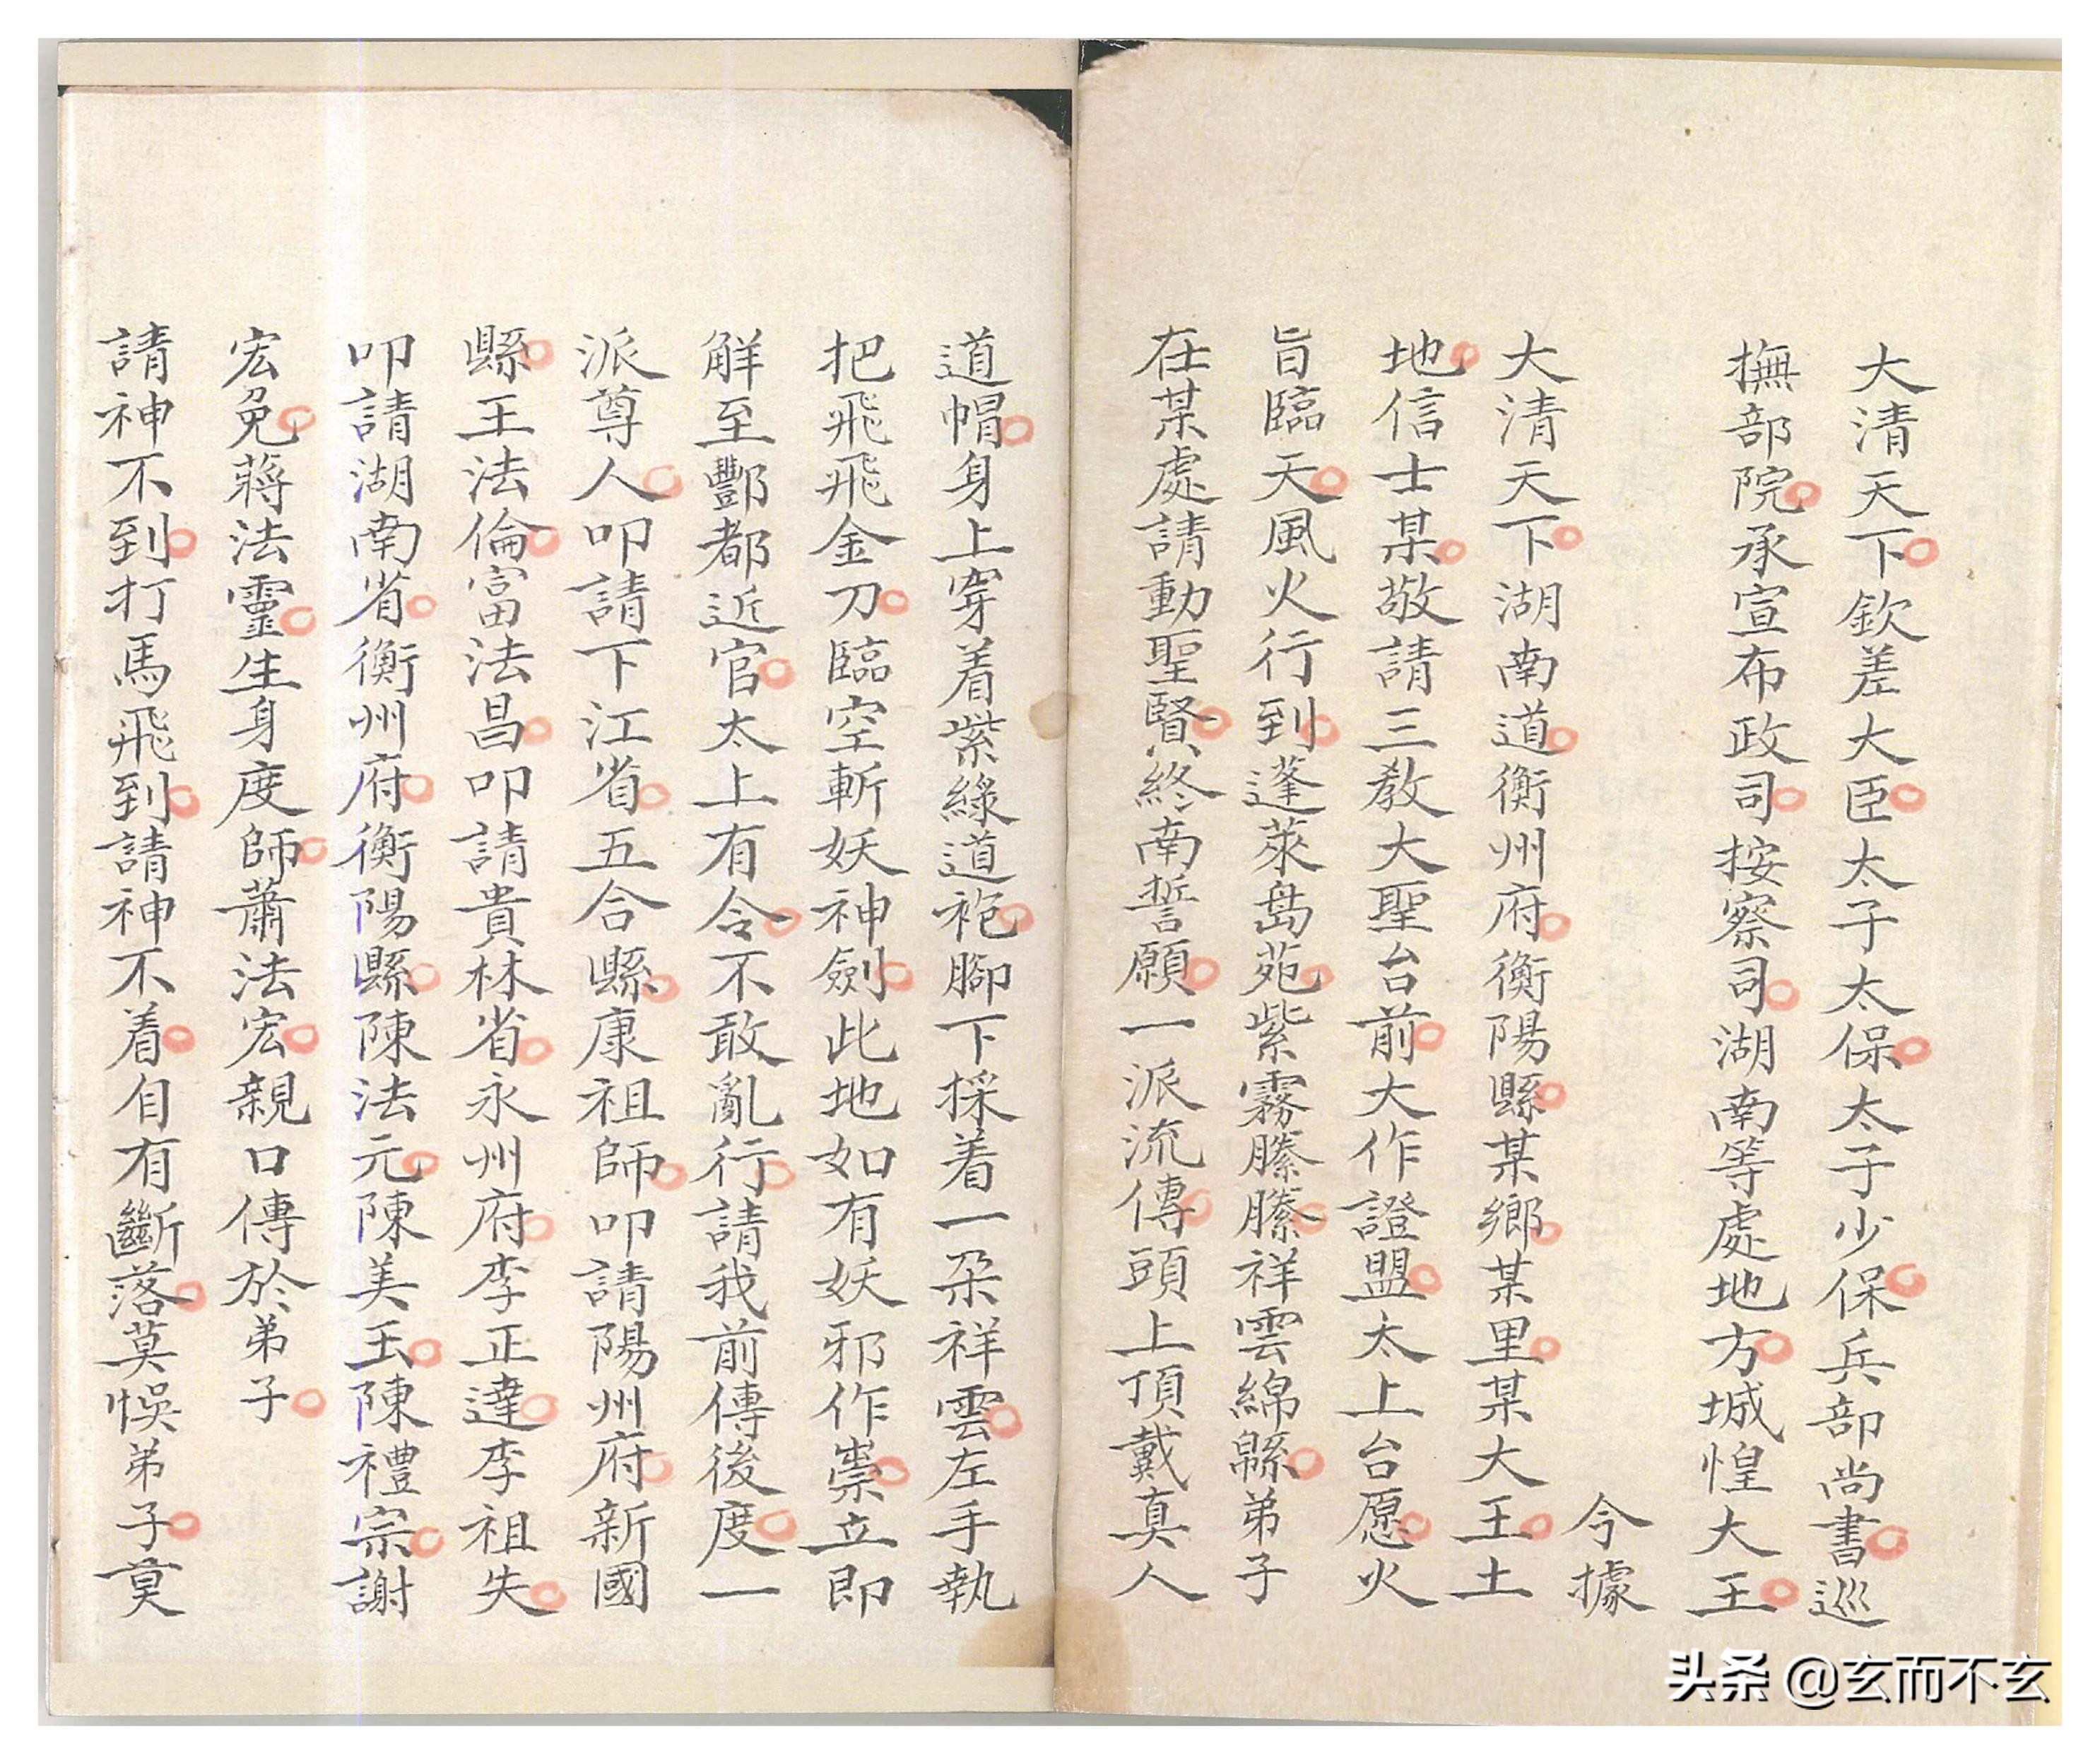 大清天下欽差大臣太子太保太子少保兵部尚書巡
撫部院承宣布政司按察司湖南等處地方城惶大王
今據
大清天下湖南道衡州府衡陽縣某鄉某里某大王土
地信士某敬請三教大聖台前大作證盟太上台愿火
旨臨天風火行到蓬萊島苑紫霧縢縢祥雲綿綿弟子
在某處請動聖賢終南誓願一派流傳頭上頂戴真人
道帽身上穿着紫綠道袍腳下採着一朶祥雲左手執
把飛飛金刀臨空斬妖神劍此地如有妖邪作祟立即
觧至酆都近官太上有令不敢亂行請我前傳後度一
派尊人叩請下江省五合縣康祖師叩請陽州府新國
縣王法倫富法昌叩請貴林省永州府李正達李祖失
叩請湖南省衡州府衡陽縣陳法元陳美玉陳禮宗謝
宏免蔣法靈生身度師蕭法宏親口傳於弟子
請神不到打馬飛到請神不着自有斷落莫悞弟子莫
头条 @玄而不玄